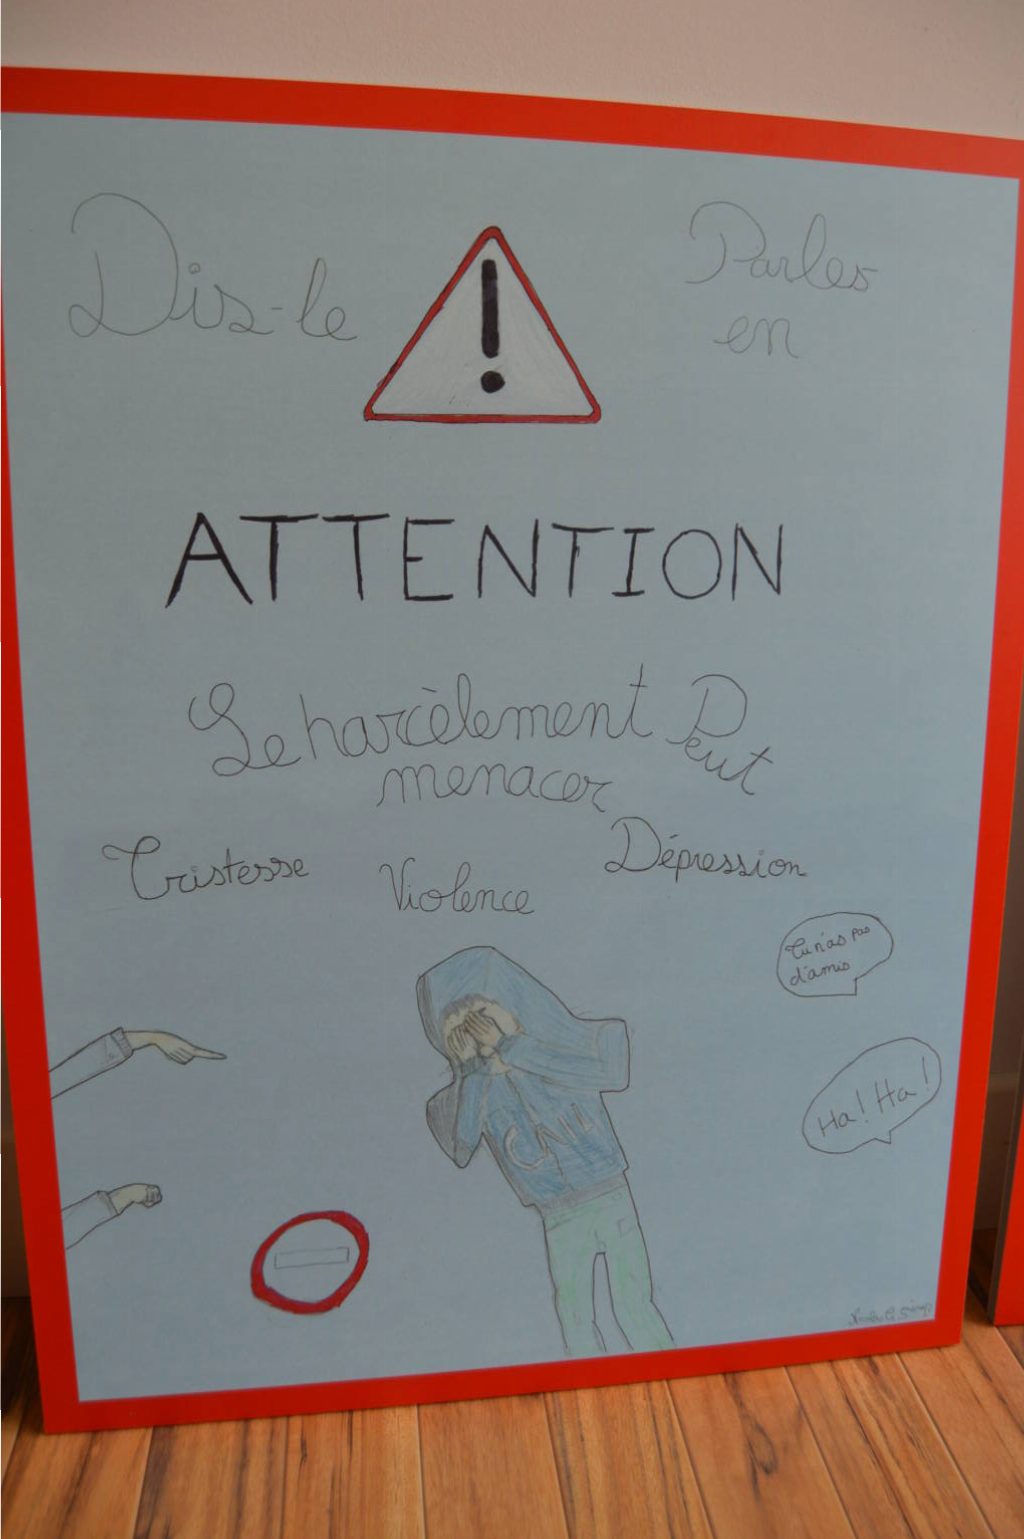 Dis-le
Parles
en
ATTENTION
Le harcèlement Peut
menacer
Tristesse
Violence
Dépression
Tu n'as pas
d'amis
Ha! Ha!